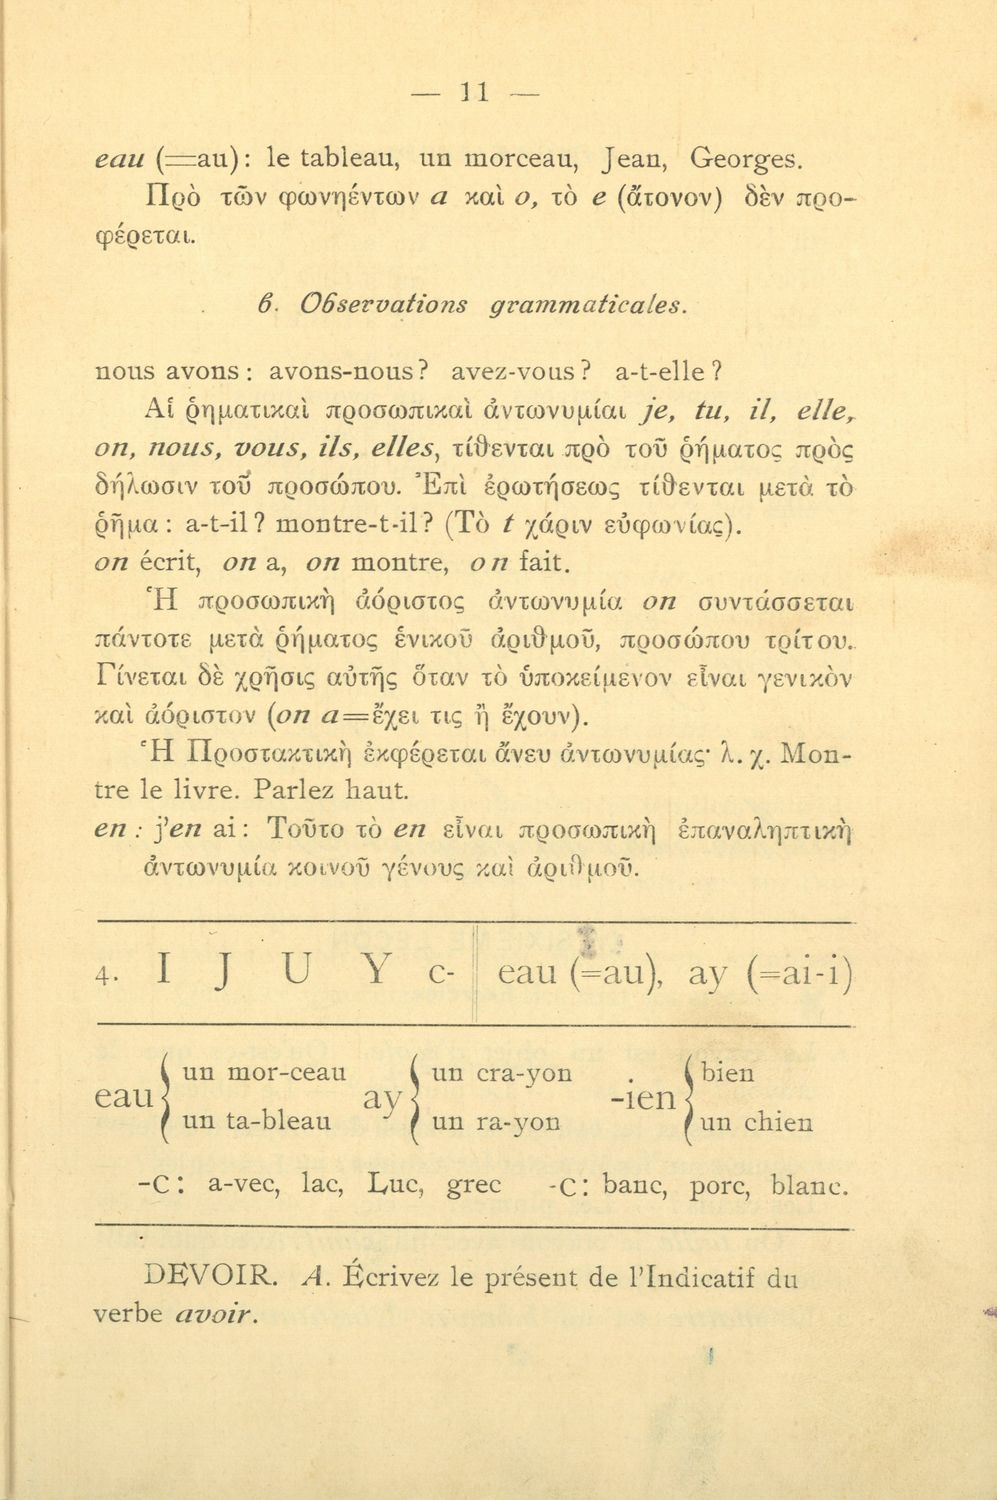 — 11 —
eau (=au): le tableau, un morceau, Jean, Georges.
Πρὸ τῶν φωνηέντων a καὶ o, τὸ e (ἄτονον) δὲν προ-
φέρεται.
6. Observations grammaticales.
nous avons: avons-nous? avez-vous? a-t-elle?
Αἱ ῥηματικαὶ προσωπικαὶ ἀντωνυμίαι je, tu, il, elle,
on, nous, vous, ils, elles, τίθενται πρὸ τοῦ ῥήματος πρὸς
δήλωσιν τοῦ προσώπου. Ἐπὶ ἐρωτήσεως τίθενται μετὰ τὸ
ῥῆμα: a-t-il? montre-t-il? (Τὸ t χάριν εὐφωνίας).
on écrit, on a, on montre, on fait.
Ἡ προσωπικὴ ἀόριστος ἀντωνυμία on συντάσσεται
πάντοτε μετὰ ῥήματος ἑνικοῦ ἀριθμοῦ, προσώπου τρίτου.
Γίνεται δὲ χρῆσις αὐτῆς ὅταν τὸ ὑποκείμενον εἶναι γενικὸν
καὶ ἀόριστον (on a=ἔχει τις ἢ ἔχουν).
Ἡ Προστακτικὴ ἐκφέρεται ἄνευ ἀντωνυμίας· λ. χ. Mon-
tre le livre. Parlez haut.
en: j'en ai: Τοῦτο τὸ en εἶναι προσωπικὴ ἐπαναληπτικὴ
ἀντωνυμία κοινοῦ γένους καὶ ἀριθμοῦ.
4. I J U Y c- eau (=au), ay (=ai-i)
eau { un mor-ceau ay { un cra-yon -ien { bien
un ta-bleau un ra-yon un chien
-c: a-vec, lac, Luc, grec -c: banc, porc, blanc.
DEVOIR. A. Écrivez le présent de l'Indicatif du
verbe avoir.